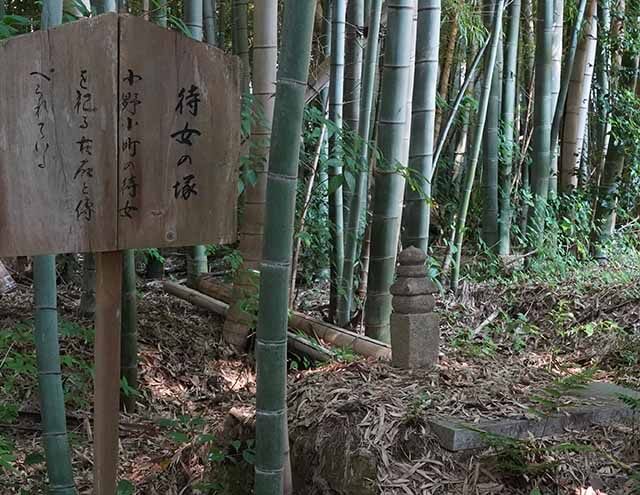 待女の塚
小野小町の待女
を祀る石と傳
へられている